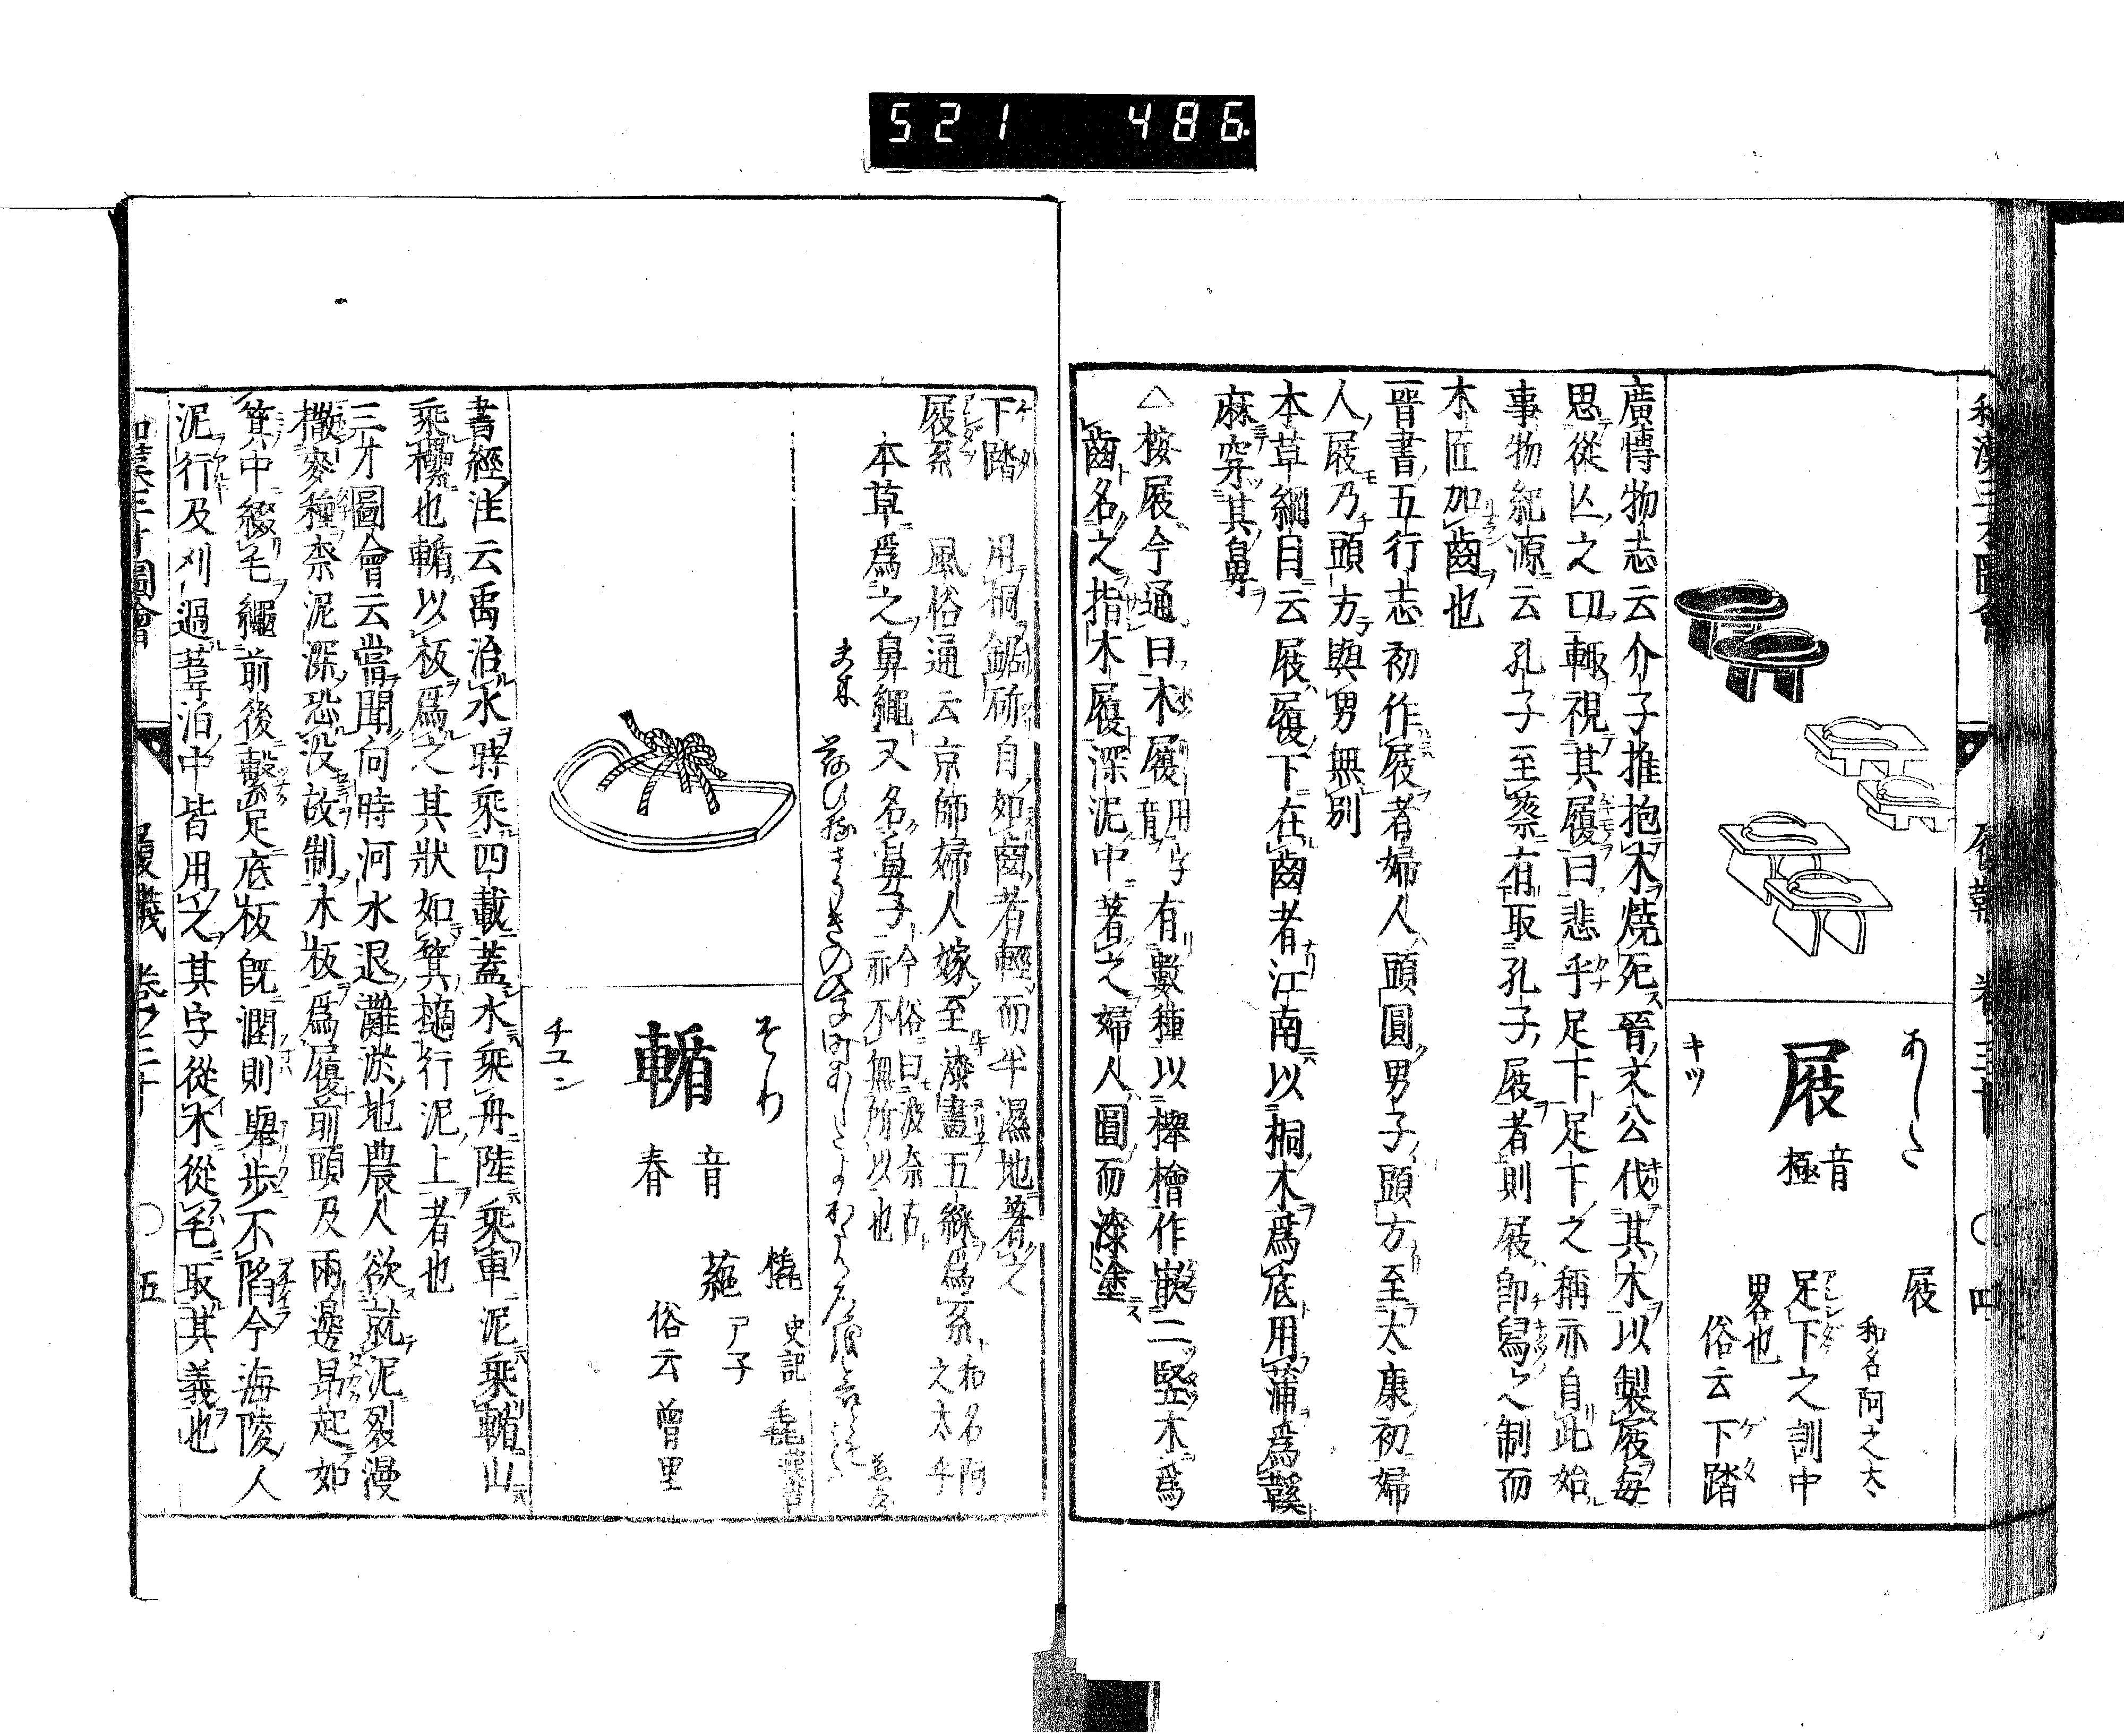 521 486.
和漢三才圖會 履襪 卷三十 〇四
あしだ
屐 音極
キツ
屐
和名阿之太
足下之訓中畧也
俗云下踏
廣博物志云介子推抱木燒死晉文公伐其木以製屐每
思從亡之功輙視其履曰悲乎足下足下之稱亦自此始
事物紀源云孔子至蔡有取孔子屐者則屐卽舃之制而
木匠加齒也
晋書五行志初作屐者婦人頭圓男子頭方至太康初婦
人屐乃頭方與男無別
本草綱目云屐履下在齒者江南以桐木爲底用蒲爲鞵
麻穿其鼻
△按屐今通曰木履用字音有數種以櫸檜作嵌二竪木爲
齒名之指木履深泥中著之婦人圓而漆塗
下踏 用桐鋸斫自如齒者輕而半濕地著之
屐系 風俗通云京師婦人嫁至漆畫五綵爲系和名阿之太乎
本草爲之鼻繩又名鼻子今俗曰波奈古亦不無所以也
そり
橇 音春
チユン
橇史記 毳漢書
蕝
俗云曾里
書經注云禹治水時乘四載蓋水乘舟陸乘車泥乘輴山
乘樏也輴以板爲之其狀如箕擿行泥上者也
三才圖會云嘗聞向時河水退灘淤地農人欲就泥裂漫
撒麥種柰泥深恐没故制木板爲履前頭及兩邊昻起如
箕中綴毛繩前後繫足底板旣濶則舉步不陷今海陵人
泥行及刈過葦泊中皆用之其字從木從毛取其義也
和漢三才圖會 履襪 卷之三十 〇五